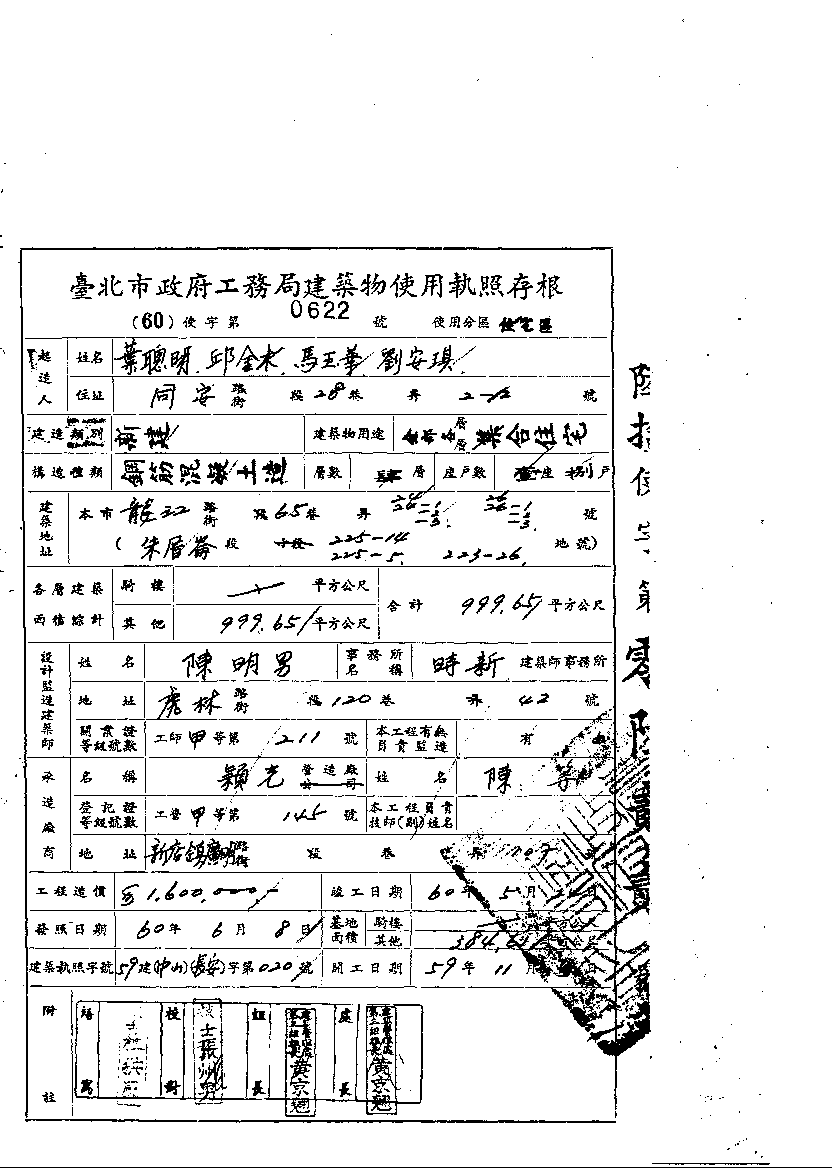 臺北市政府工務局建築物使用執照存根
(60)使字第 0622 號 使用分區 住宅區
起造人 姓名 葉聰明 邱金木 馬玉華 劉安琪
住址 同安 路街 段 28 巷 弄 2-12 號
建造類別 新建 建築物用途 全部各層層集合住宅
構造種類 鋼筋混凝土造 層數 肆層 座戶數 壹座 捌戶
建築地址 本市 龍江 路街 段 65 巷 弄 24 24-1 -2 -3. 26 26-1 -2 -3. 號
(朱厝崙 段 小段 225-14 225-5. 223-26. 地號)
各層建築面積綜計 騎樓 平方公尺 合計 999.65/平方公尺
其他 999.65/平方公尺
設計監造建築師 姓名 陳明男 事務所名稱 時新 建築師事務所
地址 虎林 路街 段 120 巷 弄 42 號
開業證等級號數 工師甲等第 211 號 本工程有無負責監造 有
承造廠商 名稱 穎光 營造廠公司 姓名 陳
登記證等級號數 工營甲等第 145 號 本工程負責技師(副)姓名
地址 新店鎮 路街 段 巷 弄 號
工程造價 1,600,000 竣工日期 60年 5月 日
發照日期 60年 6月 8日 基地面積 騎樓
其他 384.
建築執照字號 59建(中山)(長安)字第020號 開工日期 59年 11月 日
附註 繕寫 校對 技士張州男 組長 黃京翹 處長 黃京翹
陸拾使字第零陸貳貳